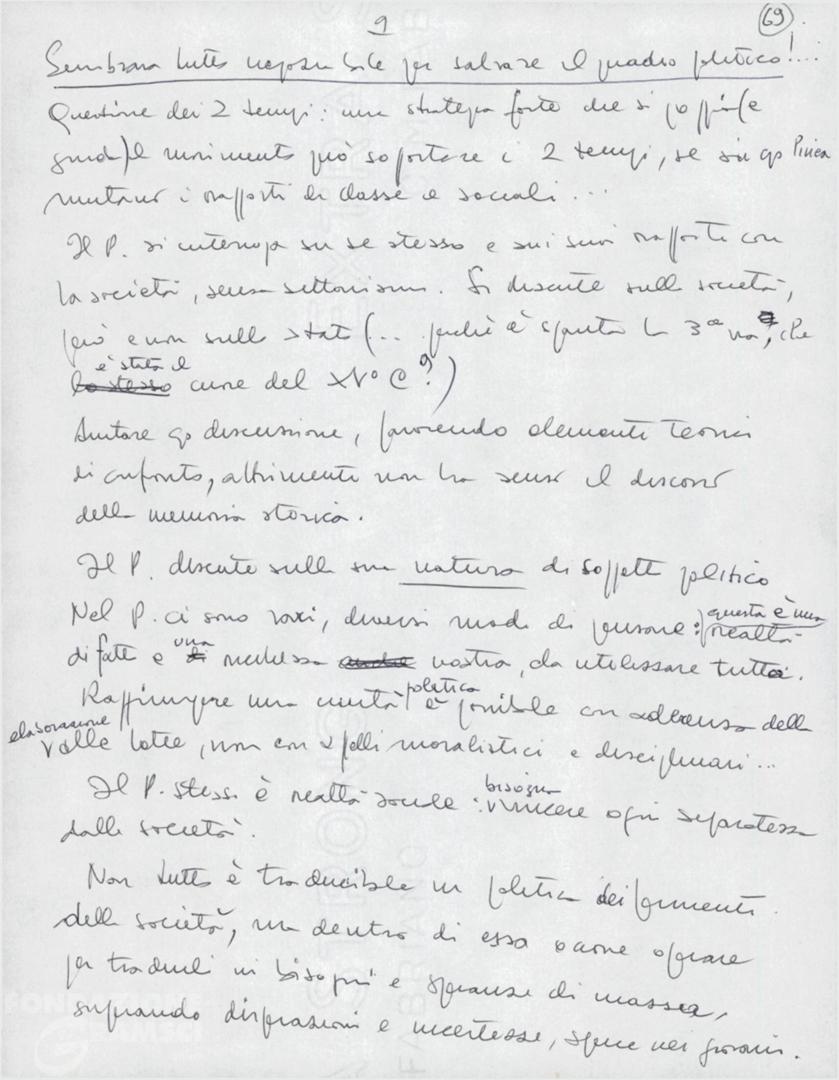 9
69
Sembrava tutto negoziabile per salvare il quadro politico!...
Questione dei 2 tempi: una strategia forte che si (e
guida) il movimento può sopportare i 2 tempi, se in linea
mutano i rapporti di classe e sociali...
Il P. si interroga su se stesso e sui suoi rapporti con
la società, senza settorismi. Si discute sulla società,
però e non sullo stato (... perché è spuntata la 3ª via, che
è stata il
lo stesso cuore del XV° C?)
Aiutare discussione, favorendo elementi teorici
di confronto, altrimenti non ha senso il discorso
della memoria storica.
Il P. discute sulla sua natura di soggetto politico
Nel P. ci sono vari, diversi modi di pensare: questa è una realtà
di fatto e una ricchezza nostra, da utilizzare tutta.
Raggiungere una unità politica è possibile con aderenza della
elaborazione
alle lotte, non con appelli moralistici e disciplinari...
Il P. stesso è realtà sociale: bisogna vincere ogni separatezza
dalla società.
Non tutto è traducibile in politica dei fermenti
della società, ma dentro di essa occorre operare
per tradurli in bisogni e speranze di massa,
superando disperazioni e incertezze, specie nei giovani.
FONDAZIONE
GRAMSCI
EXTRA STRONG
FABRIANO